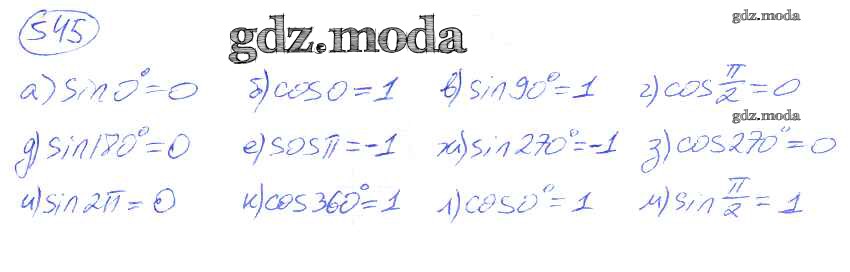 545
gdz.moda
gdz.moda
а) sin 0° = 0 б) cos 0 = 1 в) sin 90° = 1 г) cos π/2 = 0
gdz.moda
д) sin 180° = 0 е) sos π = -1 ж) sin 270° = -1 з) cos 270° = 0
и) sin 2π = 0 к) cos 360° = 1 л) cos 0° = 1 м) sin π/2 = 1